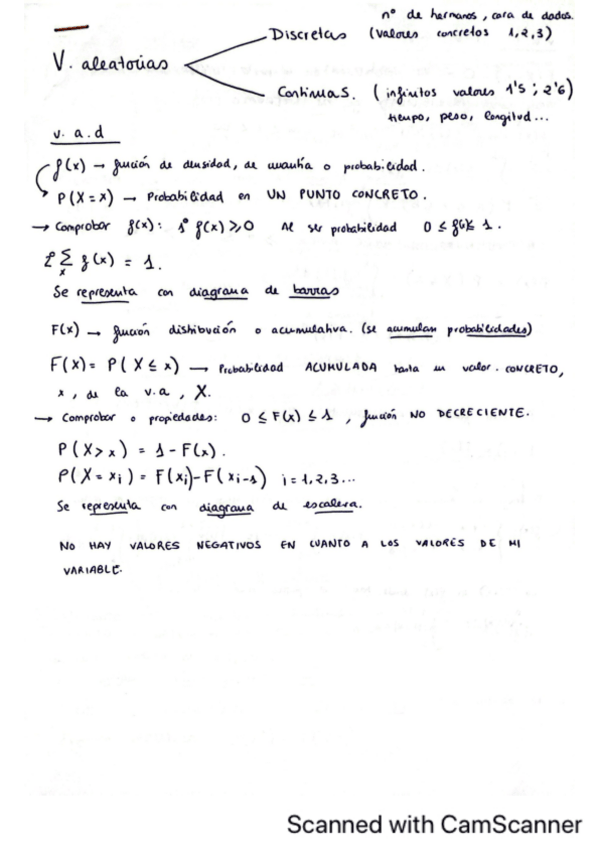 nº de hermanos, cara de dados.
Discretas (valores concretos 1,2,3)
V. aleatorias
Continuas. (infinitos valores 1'5; 2'6)
tiempo, peso, longitud...
v.a.d
f(x) → función de densidad, de cuantía o probabilidad.
P(X=x) → Probabilidad en UN PUNTO CONCRETO.
→ Comprobar f(x): 1º f(x) ≥ 0 Al ser probabilidad 0 ≤ f(x) ≤ 1.
2º Σ f(x) = 1.
x
Se representa con diagrama de barras
F(x) → función distribución o acumulativa. (se acumulan probabilidades)
F(x) = P(X ≤ x) → Probabilidad ACUMULADA hasta un valor. CONCRETO,
x, de la v.a, X.
→ Comprobar o propiedades: 0 ≤ F(x) ≤ 1, función NO DECRECIENTE.
P(X>x) = 1 - F(x).
P(X=xi) = F(xi) - F(xi-1) i=1,2,3...
Se representa con diagrama de escalera.
NO HAY VALORES NEGATIVOS EN CUANTO A LOS VALORES DE MI
VARIABLE.
Scanned with CamScanner